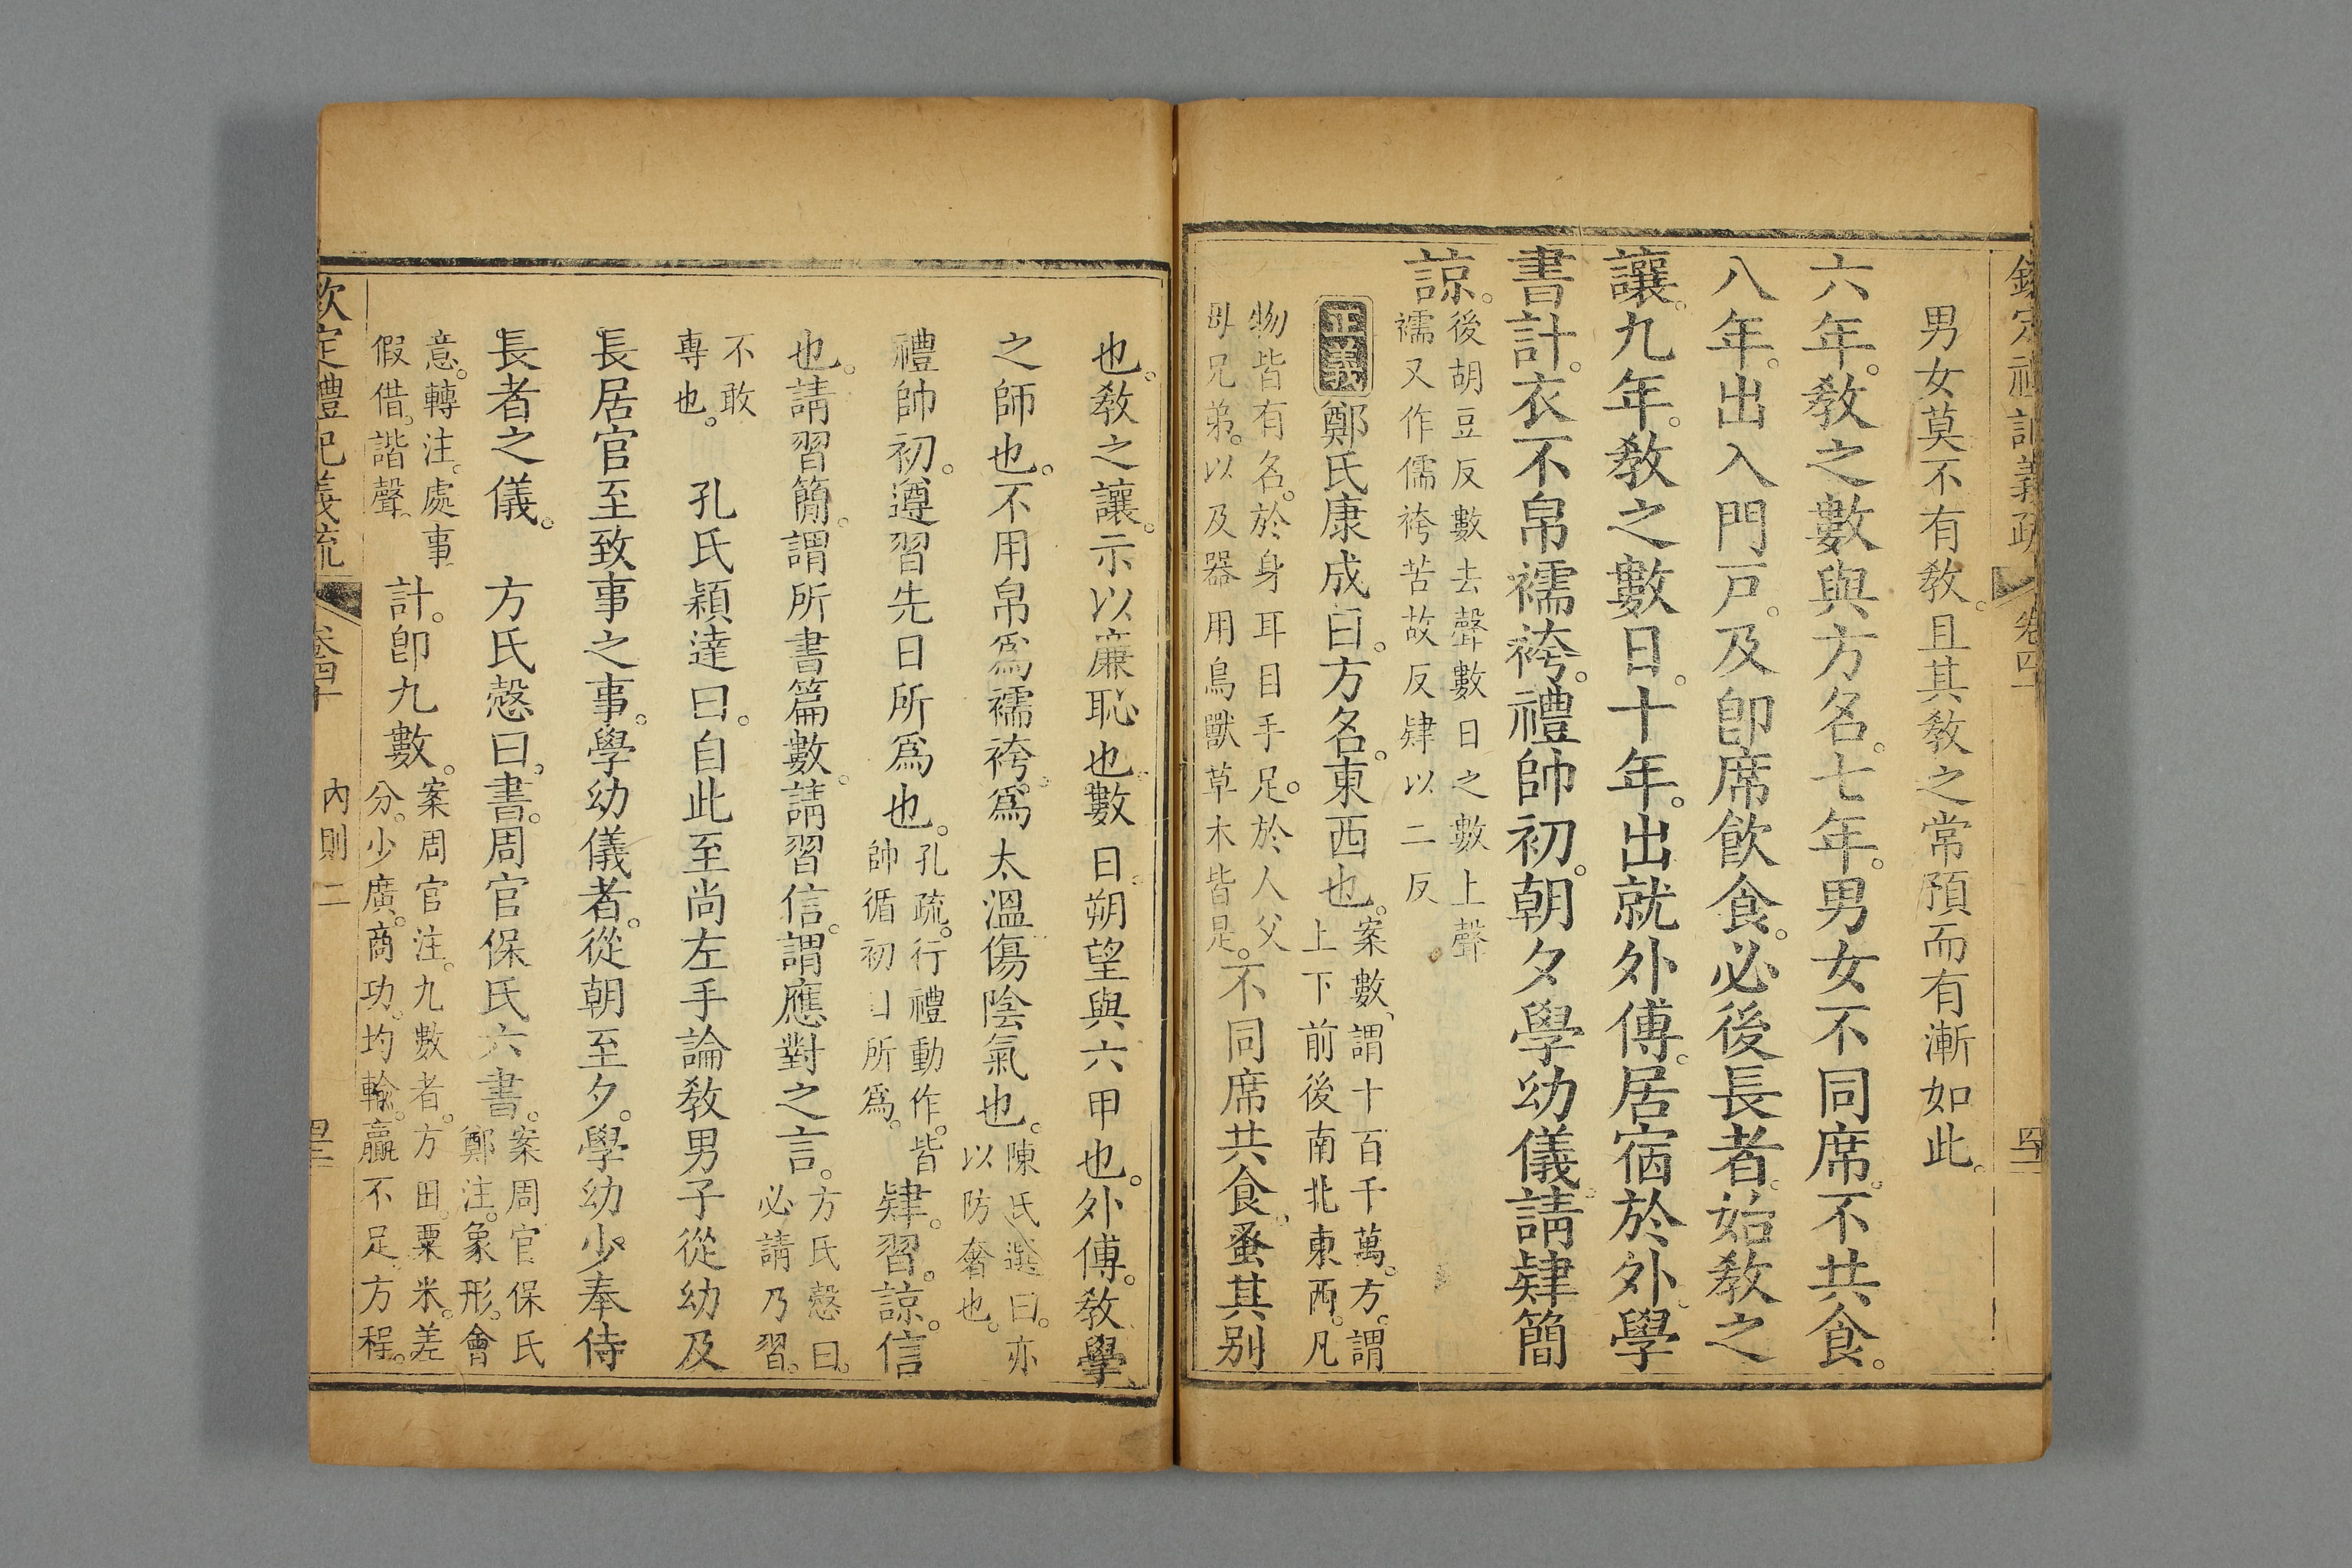 禮記義疏 卷四十
男女莫不有敎。且其敎之常預而有漸如此。
六年。敎之數與方名。七年。男女不同席。不共食。
八年。出入門戸。及卽席飮食。必後長者。始敎之
讓。九年。敎之數日。十年。出就外傅。居宿於外。學
書計。衣不帛襦袴。禮帥初。朝夕學幼儀。請肄簡
諒。後胡豆反數去聲數日之數上聲
襦又作儒袴苦故反肄以二反
正義 鄭氏康成曰。方名。東西也。案數、謂十百千萬。方。謂
上下前後南北東西。凡
物皆有名。於身耳目手足。於人父
母兄弟。以及器用鳥獸草木皆是。不同席共食。蚤其别
也。敎之讓。示以廉恥也。數日。朔望與六甲也。外傅。敎學
之師也。不用帛爲襦袴。爲太溫傷陰氣也。陳氏選曰。亦
以防奢也。
禮帥初。遵習先日所爲也。孔疏。行禮動作。皆
帥循初日所爲。肄。習。諒。信
也。請習簡。謂所書篇數。請習信。謂應對之言。方氏慤曰。
必請乃習。
不敢
專也。 孔氏穎達曰。自此至尚左手論敎男子從幼及
長居官至致事之事。學幼儀者。從朝至夕。學幼少奉侍
長者之儀。 方氏慤曰。書。周官保氏六書。案周官保氏
鄭注。象形。會
意。轉注。處事
假借。諧聲。 計。卽九數。案周官注。九數者。方田。粟米。差
分。少廣。商功。均輸。贏不足。方程。
欽定禮記義疏 卷四十 內則二